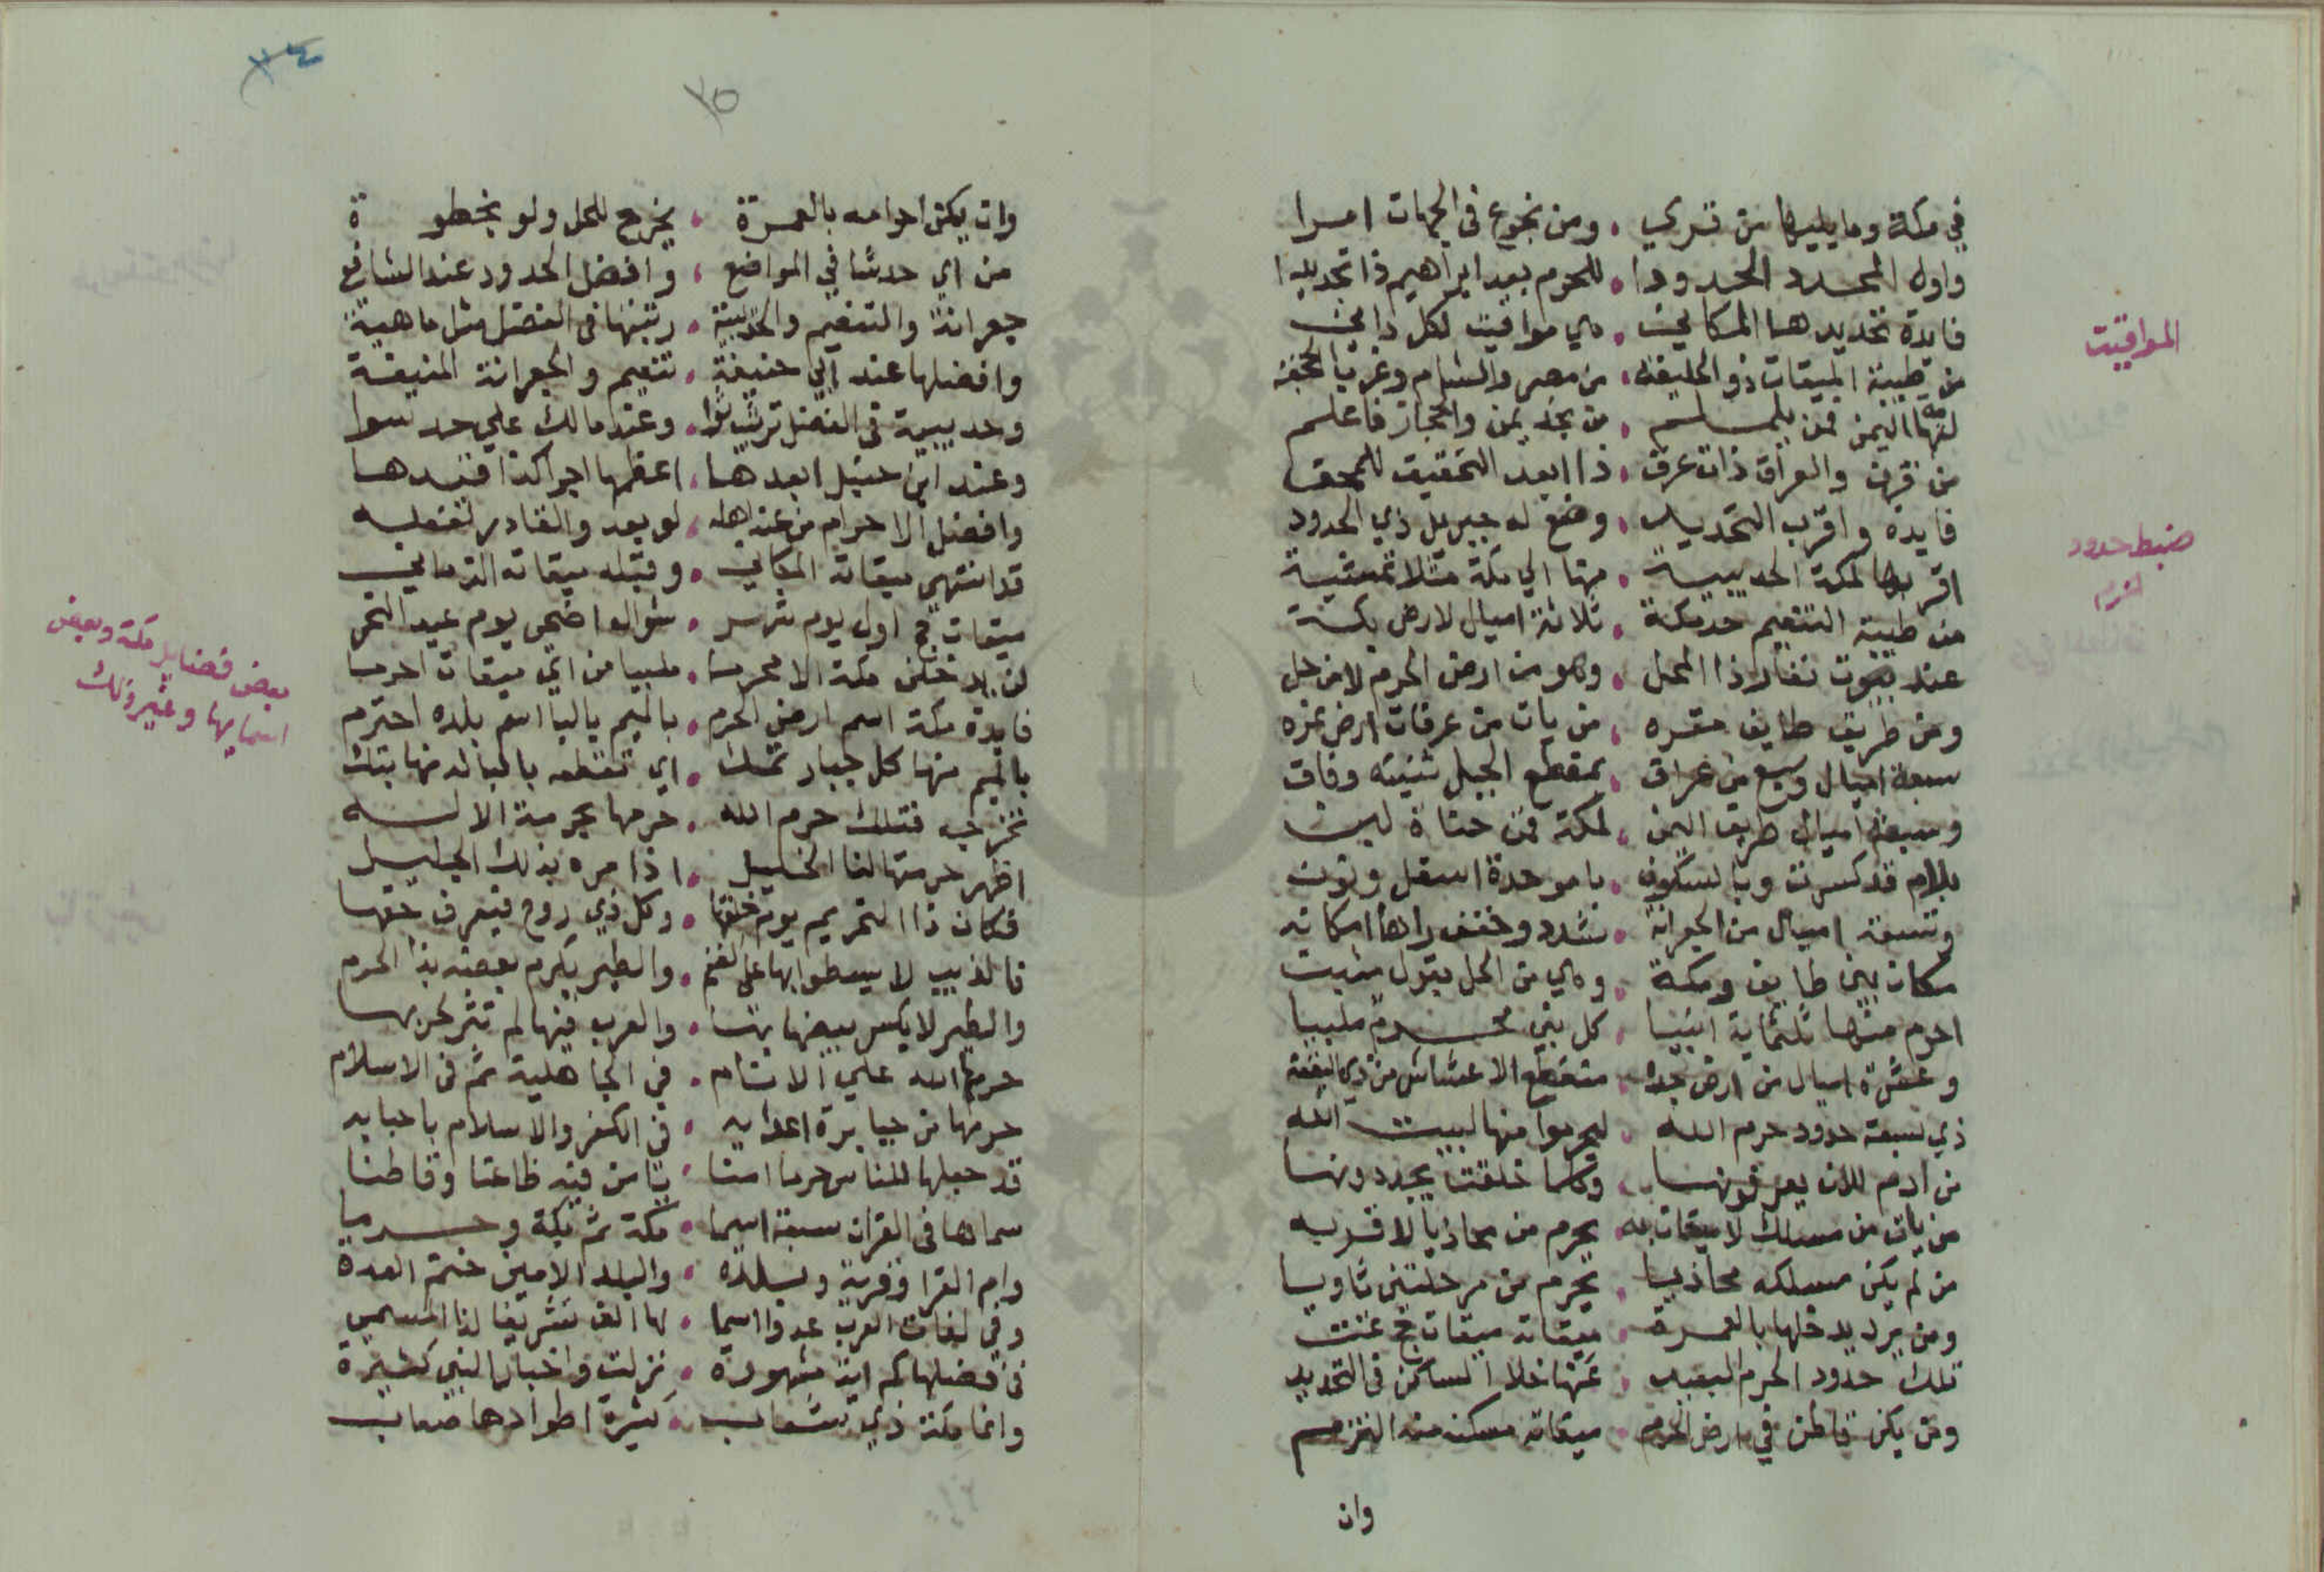 في مكة وما يليها من قري . ومن نجوع في الجهات امرا
واول المحدد الحدودا . للحرم بعد ابراهيم ذا تجديدا
المواقيت
فايدة تحديدها المكاني . هي مواقيت لكل داني
من طيبة الميقات ذو الحليفة . من مصر والشام وغرب الجحفه
اليمن فمن يلملم . من نجد يمن والحجاز فاعلم
من قرن والعراق ذات عرق . ذا ابعد التحقيق للمحق
ضبط حدود الحرم
فايدة واقرب التحديد . وضع له جبريل ذي الحدود
اقربها لمكة الحديبية . منها الي مكة مثلا تمشية
من طيبة التنعيم حد مكة . ثلاثة اميال لارض بكة
عند بيوت نفار ذا المحل . وهو من ارض الحرم لا من حل
ومن طريق طايف مقره . من يات من عرفات ارض نمره
سبعة اميال وسبع من عراق . بمقطع الجبل ثنيته وفاق
وسبعة اميال طريق اليمن . لمكة فمن لبن
بلام قد كسرت وبالسكون . با موحدة اسفل ونون
وتسعة اميال من الجعرانة . شدد وخفف راها امكانه
مكان بين طايف ومكة . وهي من الحل بقول مثبت
احرم منها ثلثماية انبيا . كل بني محرم ملبيا
وعشرة اميال من ارض جده . منقطع الاعشاش من ذي البقعة
ذي سبعة حدود حرم الله . ليحرموا منها لبيت الله
من ادم للان يعرفونها . وكلما خلقت يجددونها
من يات من مسلك لا ميقات به . يحرم من محاذيا لاقربه
من لم يكن مسلكه محاذيا . يحرم من مرحلتين ثاويا
ومن يرد يدخلها بالعمرة . ميقاته ميقات حج عنت
تلك حدود الحرم البعيد . عنها خلا الساكن في التحديد
ومن يكن قاطن في ارض الحرم . ميقاته مسكنه منه التزم
وان
٣٤
٣٥
وان يكن احرامه بالعمرة . يخرج للحل ولو بخطوة
من اي حد شا في المواضع . وافضل الحدود عند الشافع
جعرانة والتنعيم والحديبية . رتبتها في الفضل مثل ماهية
وافضلها عند ابي حنيفة . تنعيم والجعرانة المنيفة
وحديبية في الفضل ترتيب توا . وعند مالك علي حد سوا
وعند ابن حنبل ابعدها . اعظمها اجرا كذا
وافضل الاحرام من عند اهله . لو بعد والقادر لفعله
قد انتهي ميقاته المكاني . وقبله ميقاته الزماني
ميقات حج اول يوم شهر . شوال اضحي يوم عيد النحر
لن يدخلن مكة الا محرما . ملبيا من اي ميقات احرما
بعض فضايل مكة وبعض
اسمايها وغير ذلك
فايدة مكة اسم ارض الحرم . بالميم بالبا اسم بلده احترم
بالميم منها كل جبار تمك . اي تقطعه بالبا له منها بتك
فتلك حرم الله . حرمها بحرمة الاله
اظهر حرمتها لنا الخليل . اذ امره بذلك الجليل
فكان ذا التحريم يوم خلقها . وكل ذي روح فيعرف حقها
فالذيب لا يسطو بها علي الغنم . والطير يكرم بعضه بذا الحرم
والطير لا يكسر بيضها بها . والعرب فيها لم تثر لحربها
حرمها الله علي الانام . في الجاهلية ثم في الاسلام
حرمها من جبابرة اعدايه . في الكفر والاسلام باحبايه
قد جعلها للناس حرما امنا . يامن فيه ظاعنا وقاطنا
سماها في القران سبعة اسما . مكة ثم بكة وحرما
وام القرا وقرية وبلده . والبلد الامين ختم العدة
وفي لغات العرب عدوا اسما . لها الف تشريفا لذا المسمي
في فضلها كم اية مشهورة . نزلت واخبار النبي كثيرة
وانما مكة ذي شعاب . كثيرة اطوادها صعاب